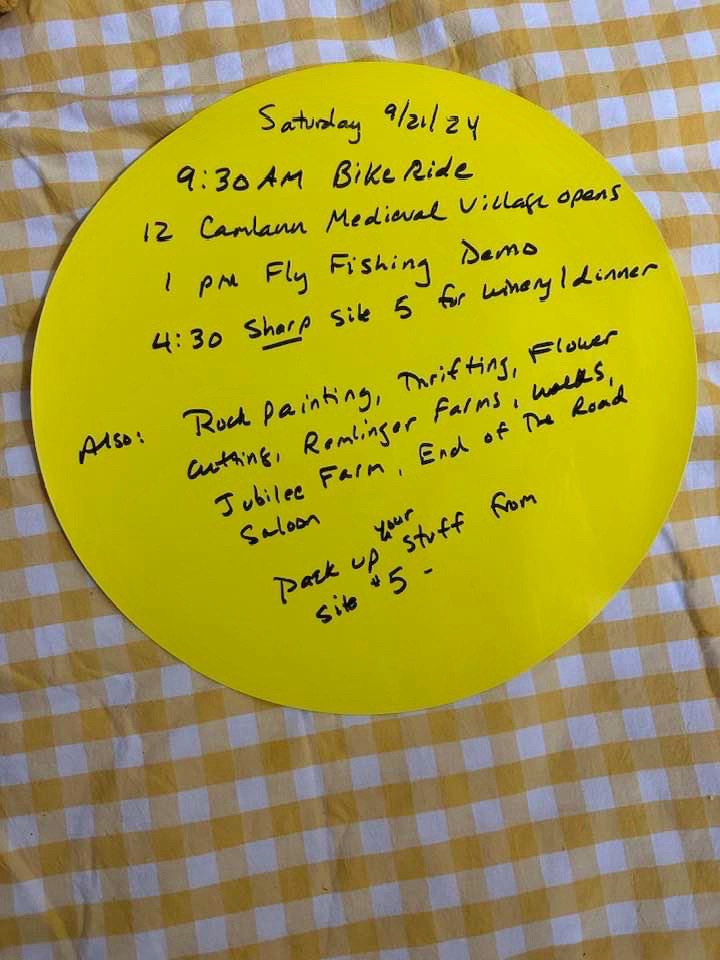 Saturday 9/21/24
9:30 AM Bike Ride
12 Camlann Medieval Village opens
1 pm Fly Fishing Demo
4:30 Sharp site 5 for winery/dinner
Also: Rock painting, Thrifting, Flower
cutting, Remlinger Farms, walks,
Jubilee Farm, End of The Road
Saloon
pack up your stuff from
site #5 -